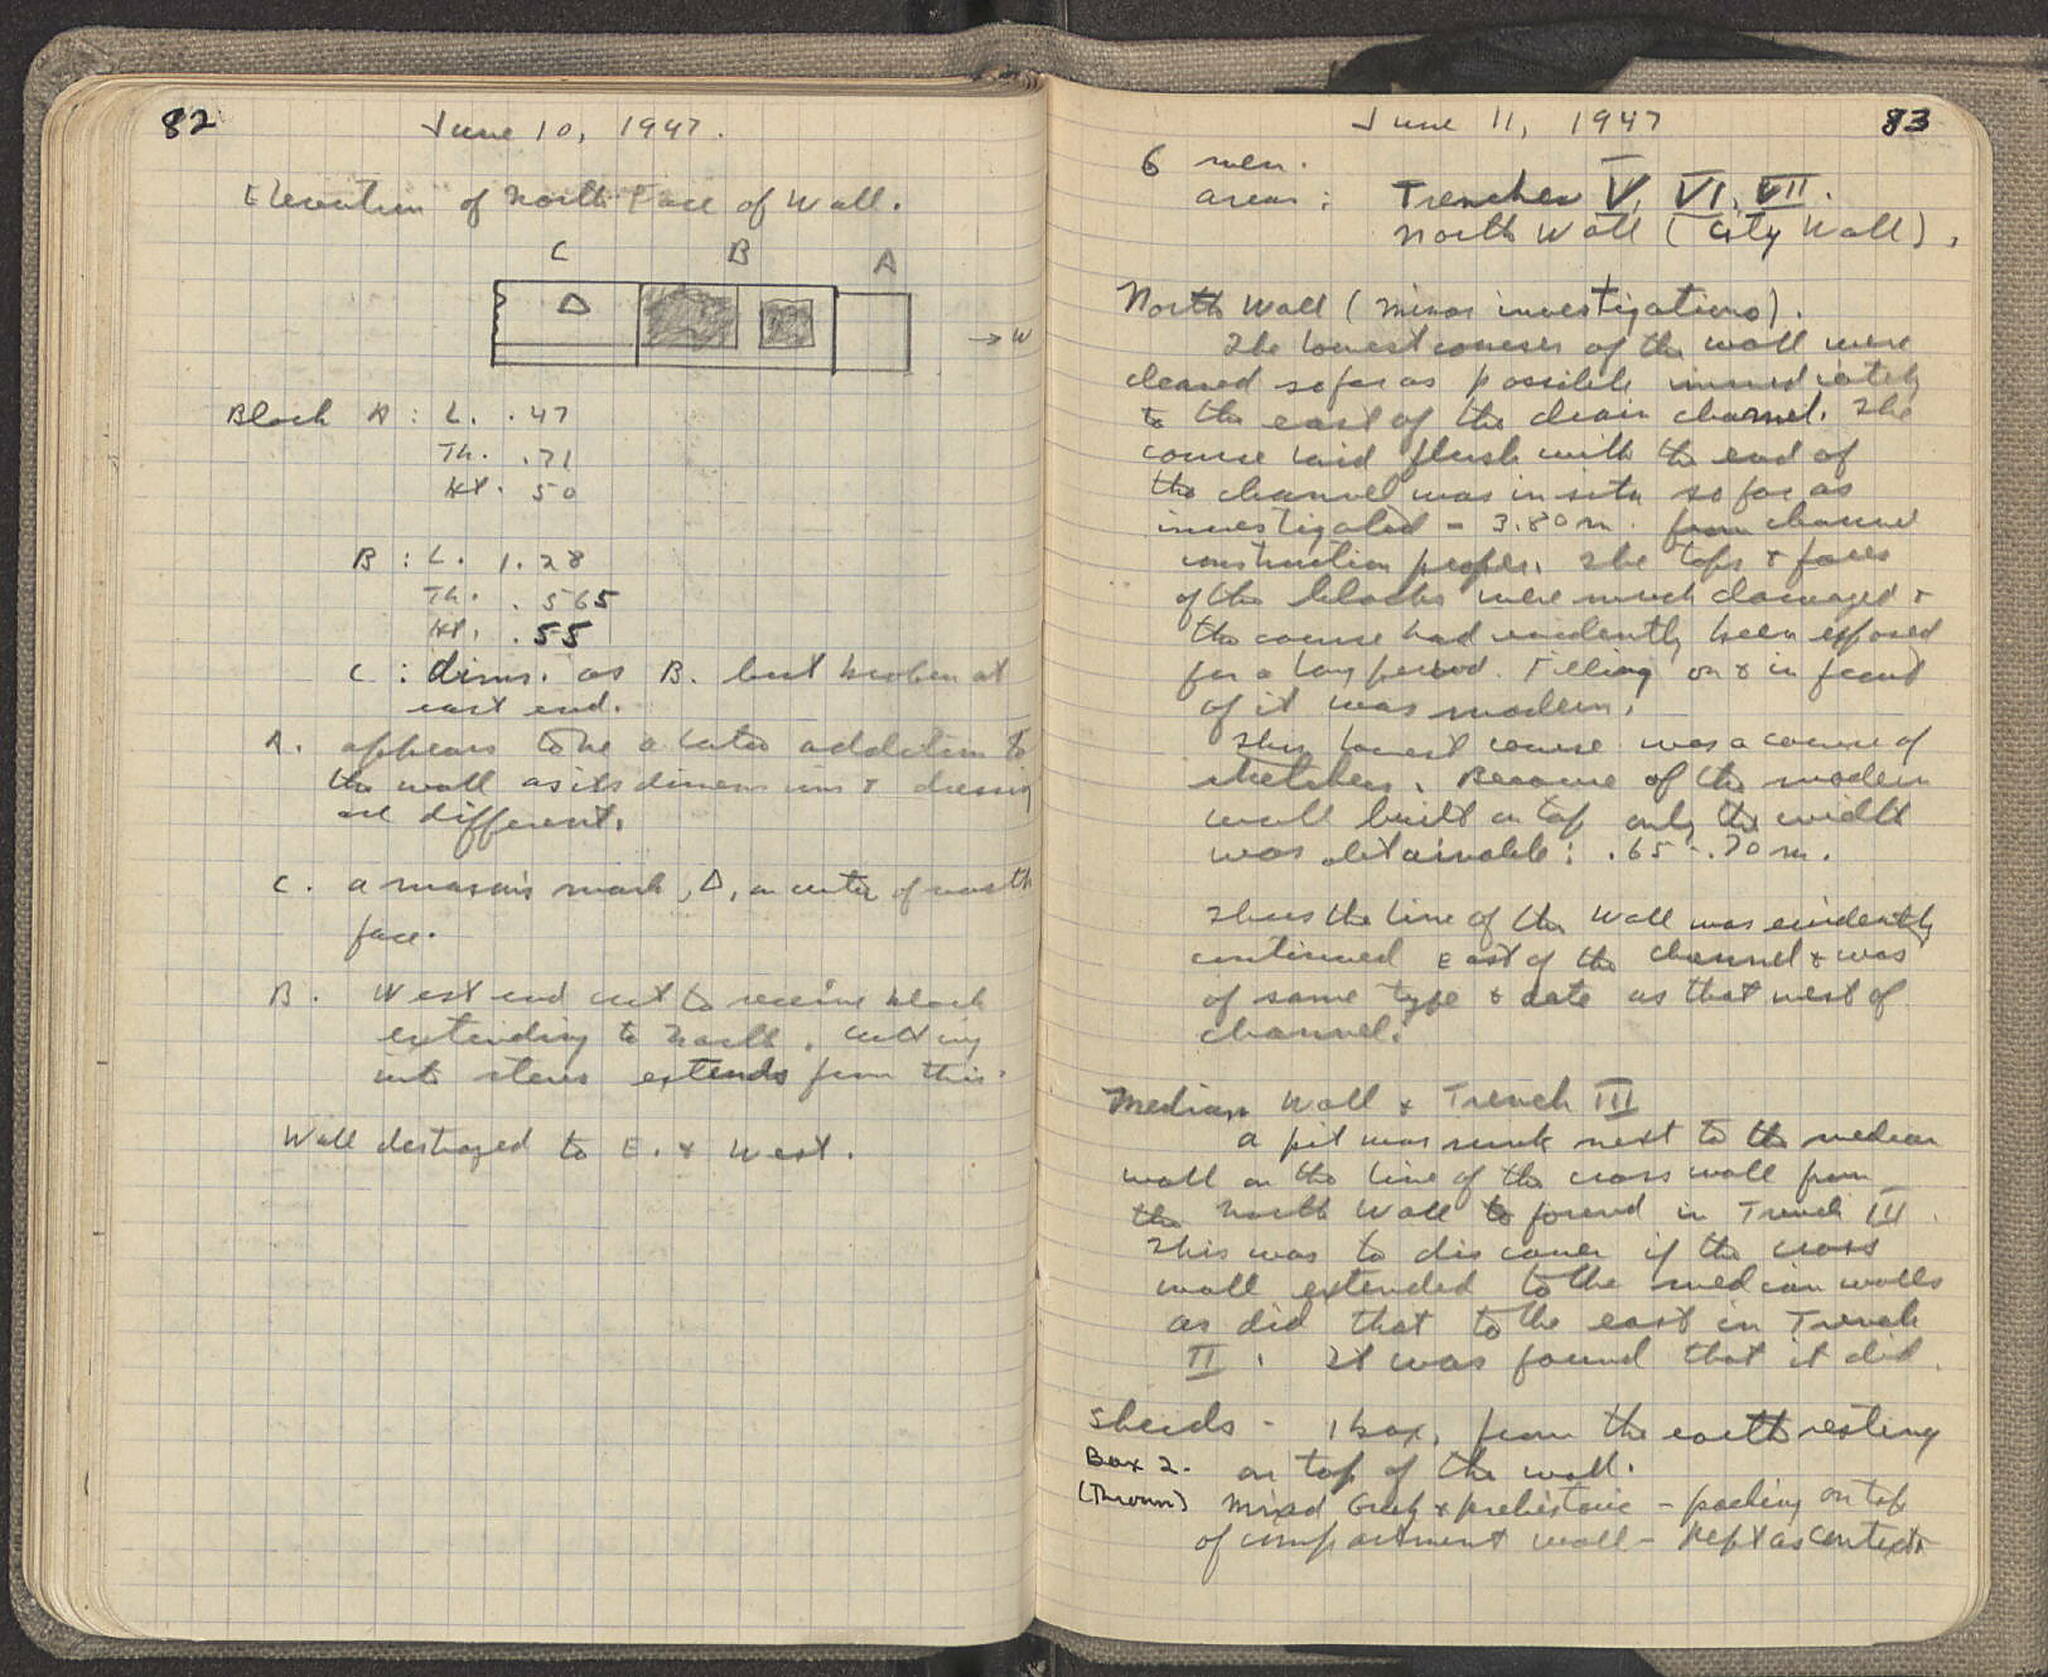 82
June 10, 1947.
Elevation of North Face of Wall.
C B A
△
→ W
Block A : L. .47
Th. .71
Ht. 50
B : L. 1.28
Th. .565
Ht. .55
C : dims. as B. but broken at
east end.
A. appears to be a later addition to
the wall as its dimensions & dressing
are different.
C. a mason's mark, △, on center of north
face.
B. West end cut to receive block
extending to North. Cutting
into stones extends from this.
Wall destroyed to E. & West.
June 11, 1947
83
6 men.
areas : Trenches V, VI, VII.
North Wall (City Wall).
North Wall (minor investigations).
The lowest courses of the wall were
cleared so far as possible immediately
to the east of the drain channel. The
course laid flush with the end of
the channel was in situ so far as
investigated - 3.80 m. from channel
construction proper. The tops & faces
of the blocks were much damaged &
the course had evidently been exposed
for a long period. Filling on & in front
of it was modern.
This lowest course was a course of
stretchers. Because of the modern
wall built on top only the width
was obtainable : .65 - .70 m.
Thus the line of the Wall was evidently
continued East of the channel & was
of same type & date as that west of
channel.
Median Wall & Trench III
A pit was sunk next to the median
wall on the line of the cross wall from
the North Wall to found in Trench III.
This was to discover if the cross
wall extended to the median walls
as did that to the east in Trench
II. It was found that it did.
Sherds - 1 box, from the earth resting
Box 2. on top of the wall.
(Thrown) Mixed Greek & prehistoric - packing on top
of compartment wall - kept as context